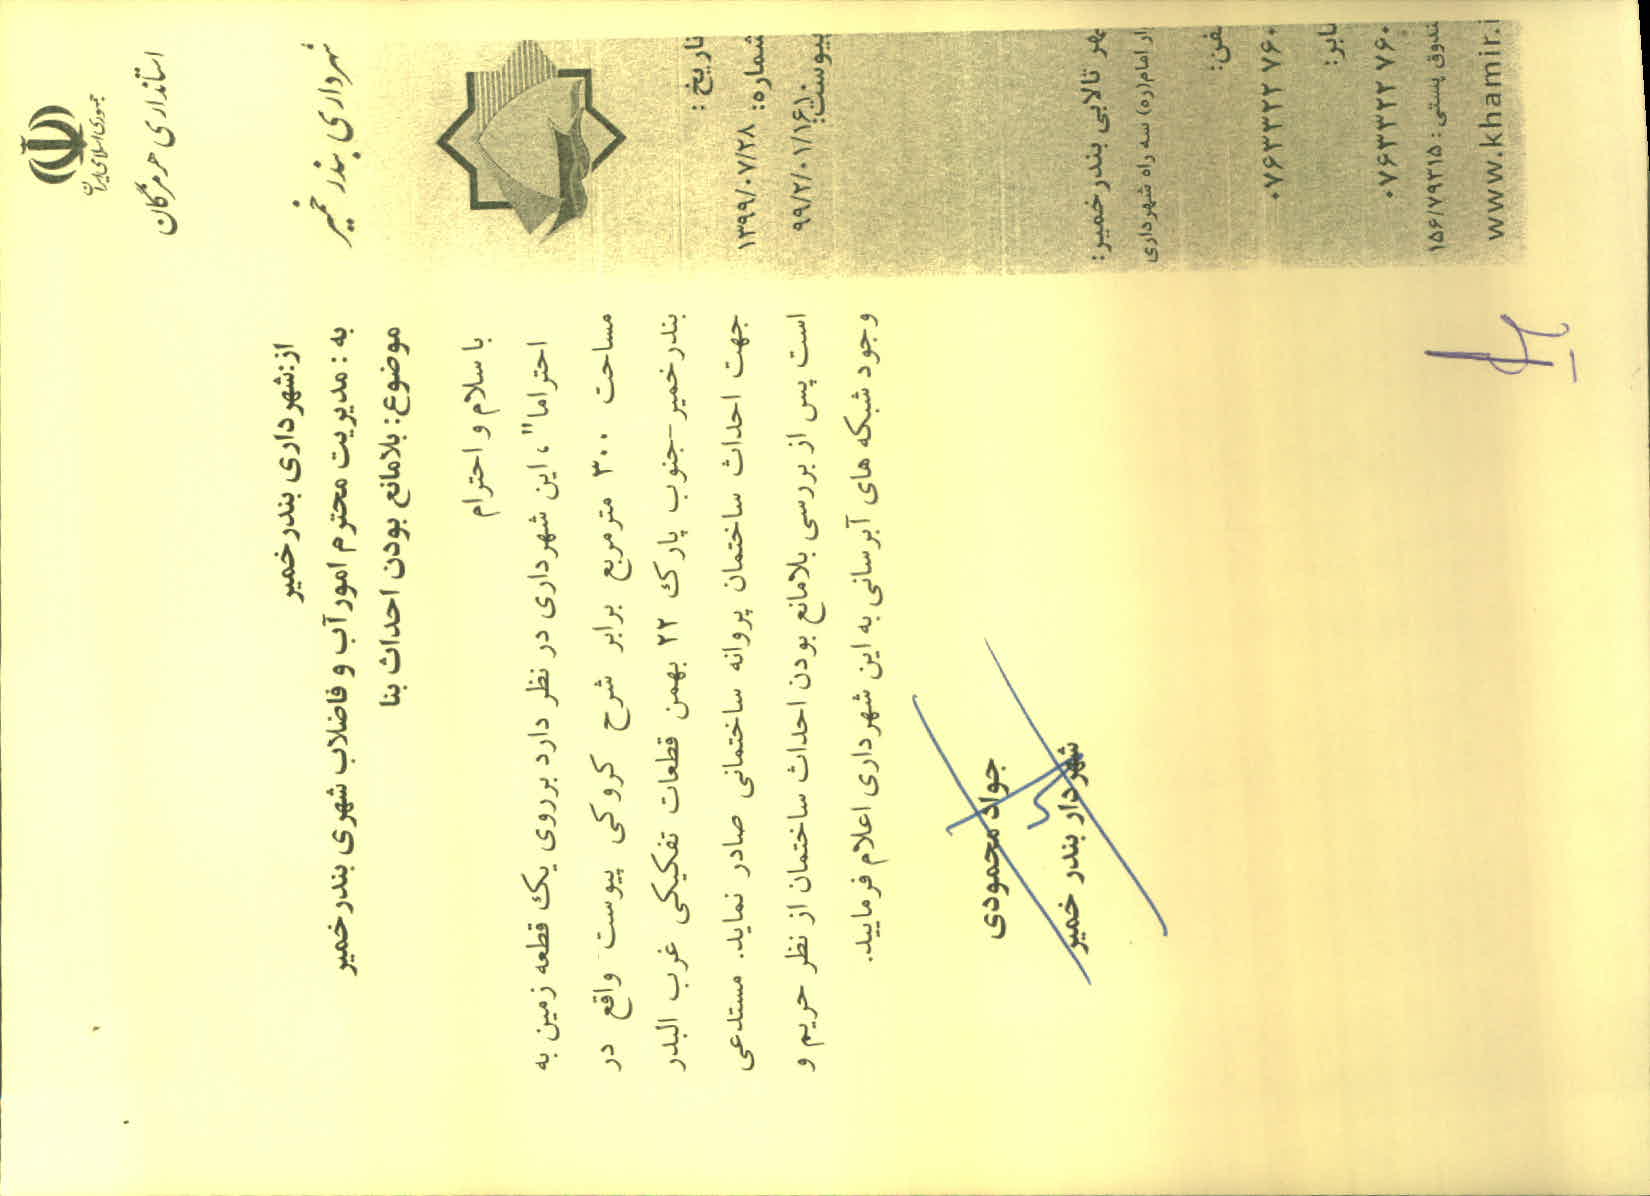 جمهوری اسلامی ایران
استانداری هرمزگان
شهرداری بندر خمیر
تاریخ :
۱۳۹۹/۰۷/۲۸
شماره:
پیوست:
تالابی بندرخمیر:
امام(ره) سه راه شهرداری
۰۷۶۳۳۲۲ ۷۶۰
۰۷۶۳۳۲۲ ۷۶۰
پستی : ۱۵۶/۷۹۳۱۵
www.khamir.i
از:شهرداری بندرخمیر
به : مدیریت محترم امور آب و فاضلاب شهری بندرخمیر
موضوع: بلامانع بودن احداث بنا
با سلام و احترام
احتراما"، این شهرداری در نظر دارد برروی یک قطعه زمین به
مساحت ۳۰۰ مترمربع برابر شرح کروکی پیوست واقع در
بندرخمیر-جنوب پارک ۲۲ بهمن قطعات تفکیکی غرب البدر
جهت احداث ساختمان پروانه ساختمانی صادر نماید. مستدعی
است پس از بررسی بلامانع بودن احداث ساختمان از نظر حریم و
وجود شبکه های آبرسانی به این شهرداری اعلام فرمایید.
جواد محمودی
شهردار بندر خمیر